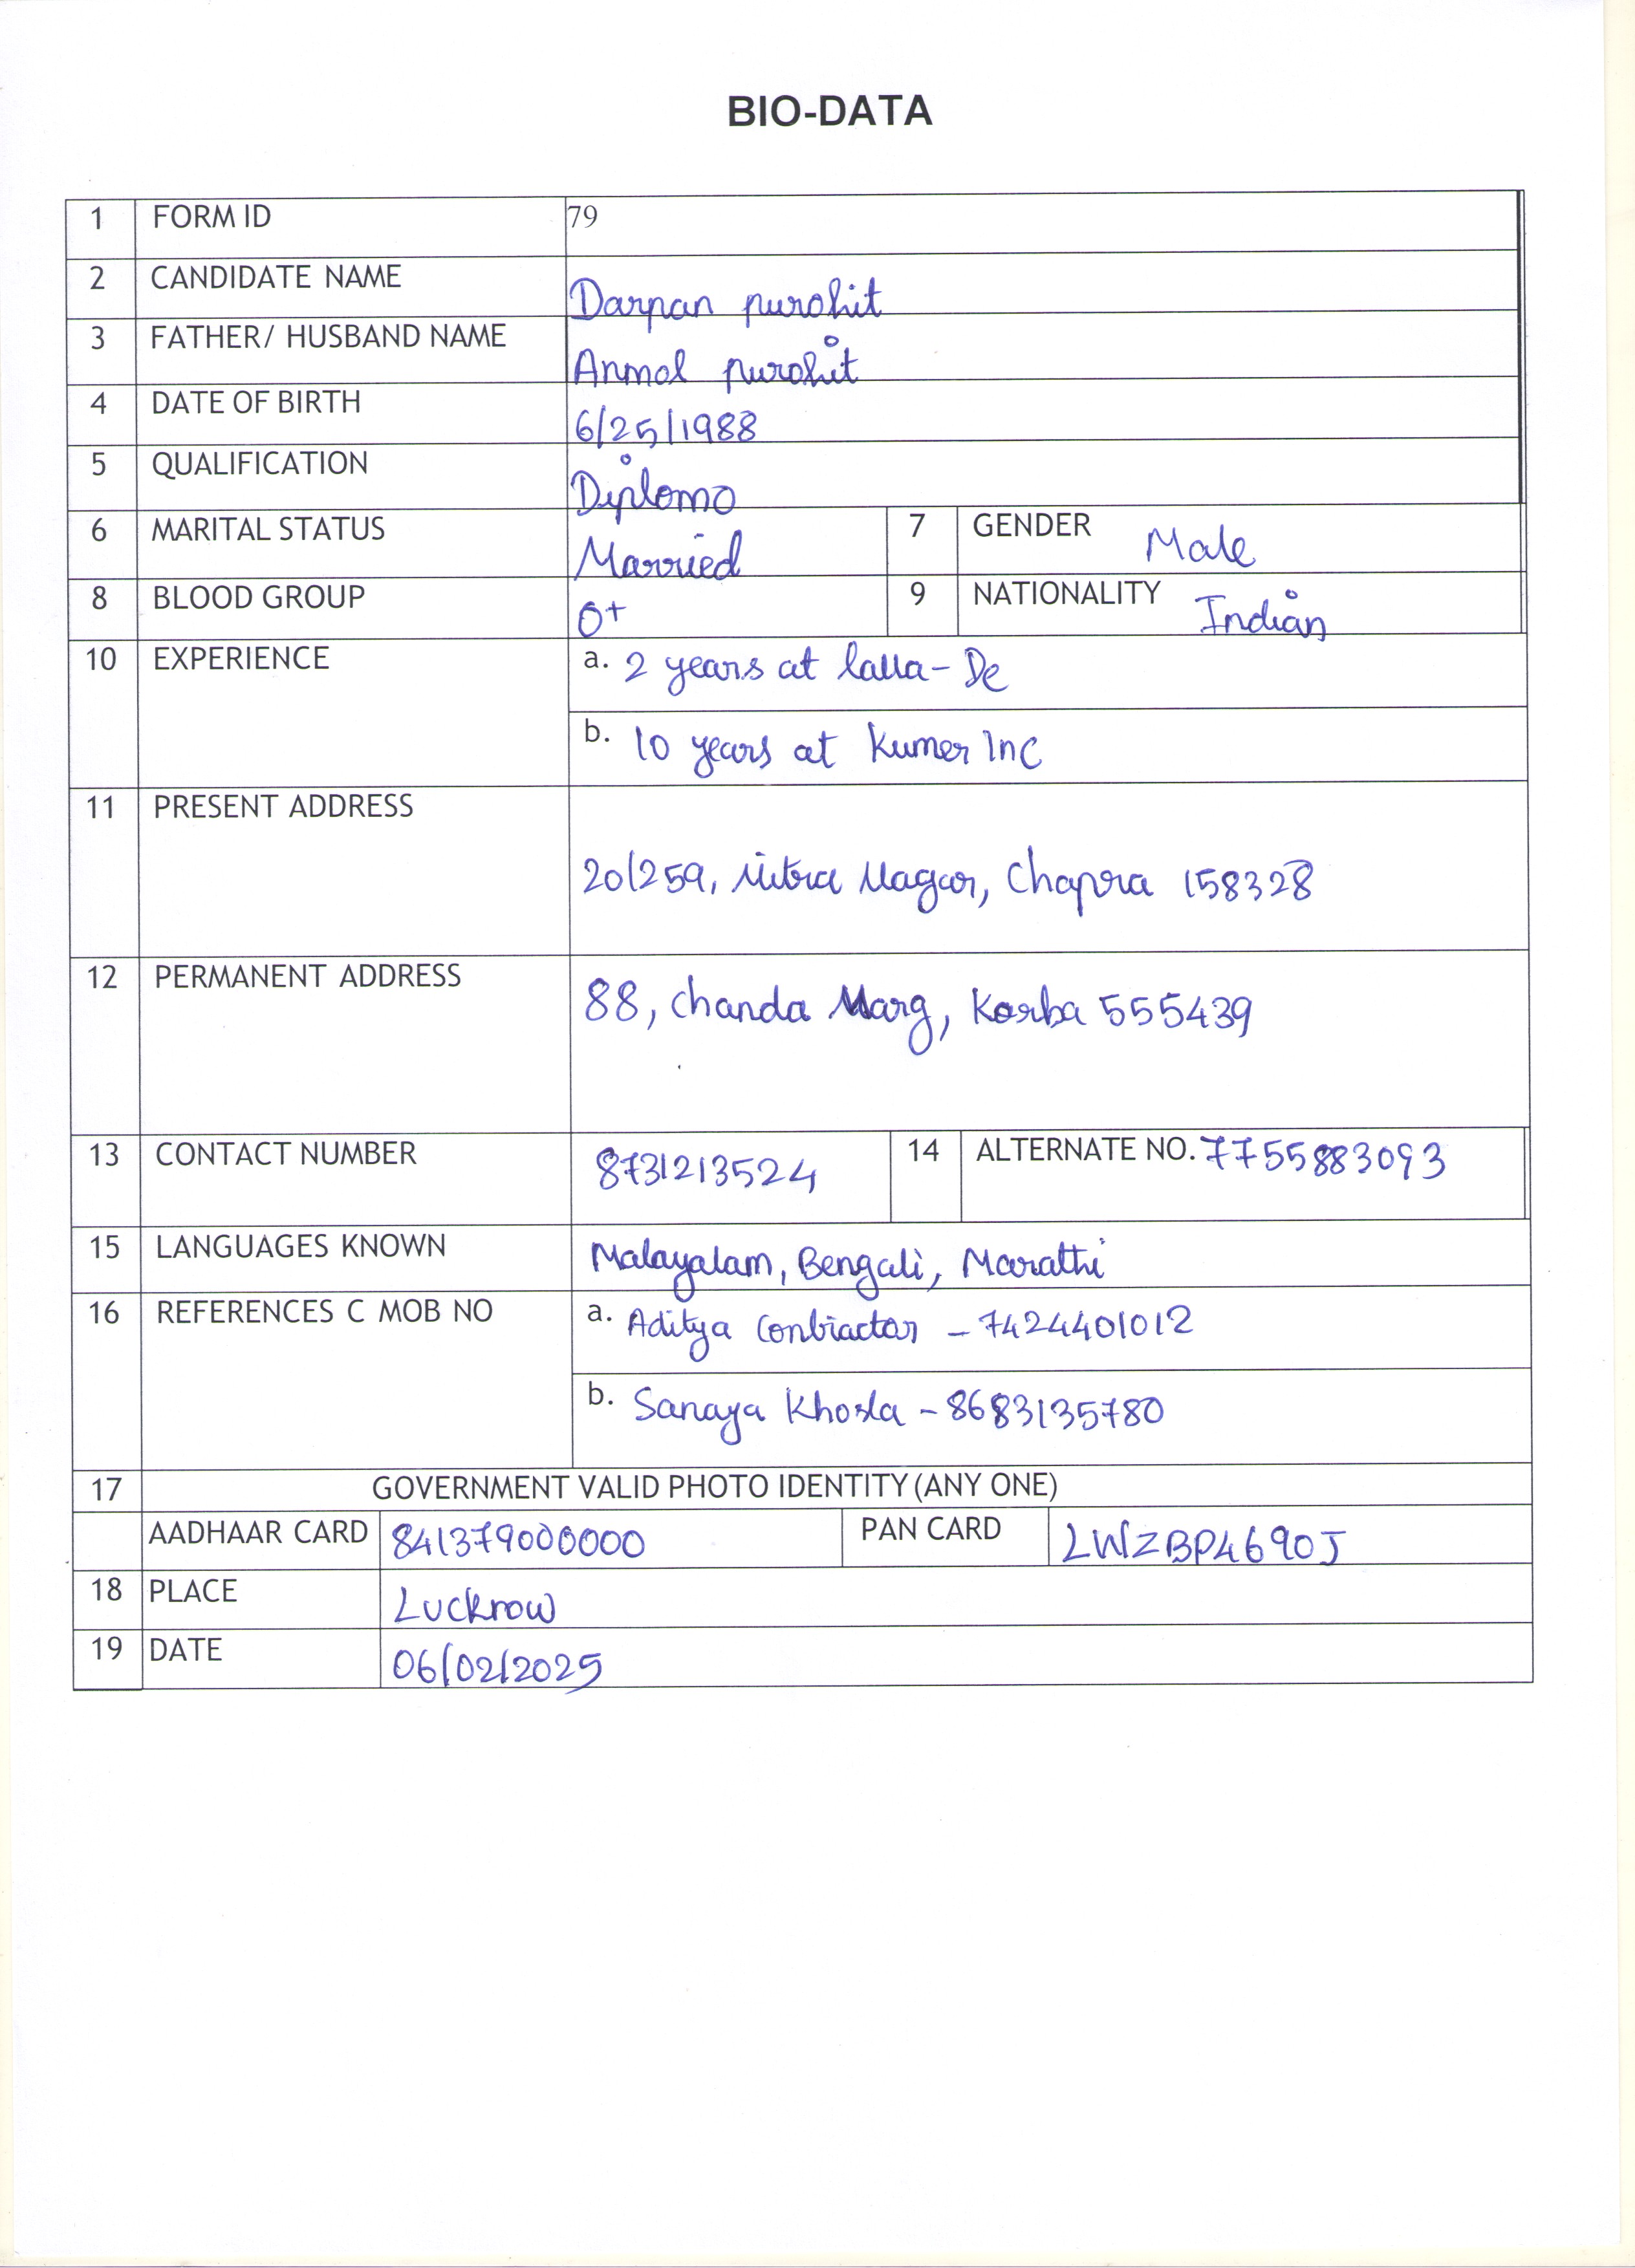 BIO-DATA
1 FORM ID 79
2 CANDIDATE NAME Darpan purohit
3 FATHER/ HUSBAND NAME Anmol purohit
4 DATE OF BIRTH 6/25/1988
5 QUALIFICATION Diplomo
6 MARITAL STATUS Married 7 GENDER Male
8 BLOOD GROUP O+ 9 NATIONALITY Indian
10 EXPERIENCE a. 2 years at lalla-De
b. 10 years at Kumer Inc
11 PRESENT ADDRESS
20/259, Mitra Nagar, Chapra 158328
12 PERMANENT ADDRESS 88, Chanda Marg, Korba 555439
13 CONTACT NUMBER 8731213524 14 ALTERNATE NO. 7755883093
15 LANGUAGES KNOWN Malayalam, Bengali, Marathi
16 REFERENCES C MOB NO a. Aditya Contractor - 7424401012
b. Sanaya Khosla - 8683135780
17 GOVERNMENT VALID PHOTO IDENTITY (ANY ONE)
AADHAAR CARD 841379000000 PAN CARD LWZBP4690J
18 PLACE Lucknow
19 DATE 06/02/2025